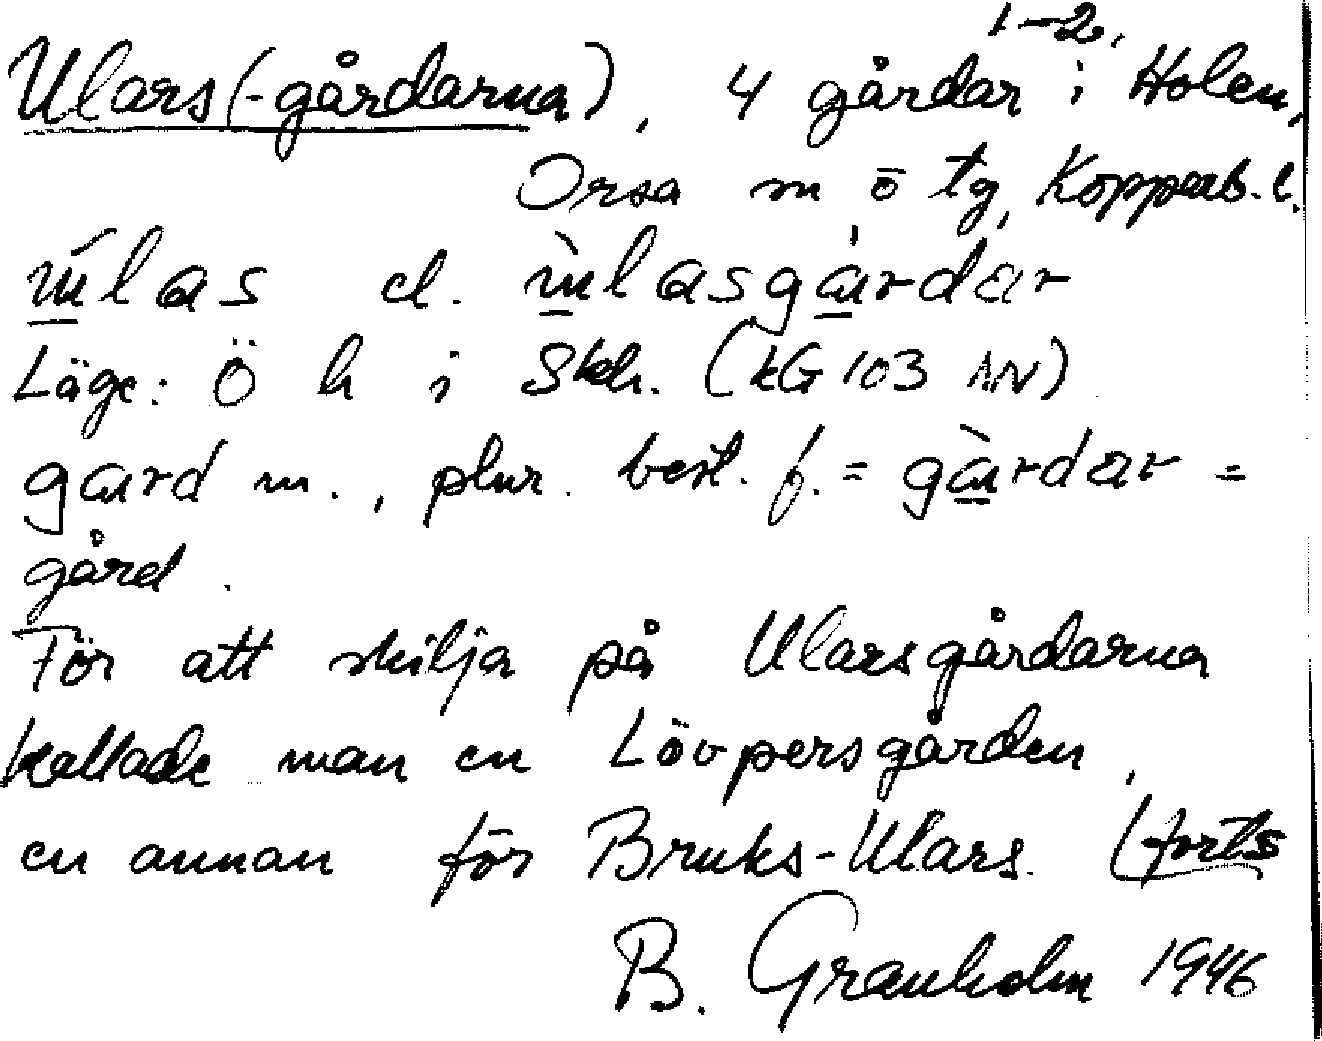 1-2.
Ulars(-gårdarna), 4 gårdar i Holen,
Orsa m ö tg, Kopparb. l.
ɯ́las el. ɯ̀lasgardar
Läge: Ö h i Skh. (kG 103 NV)
gard m., plur. best. f. = gàrdar =
gård.
För att skilja på Ularsgårdarna
kallade man en Lövpersgården,
en annan för Bruks-Ulars. (forts
B. Granholm 1946